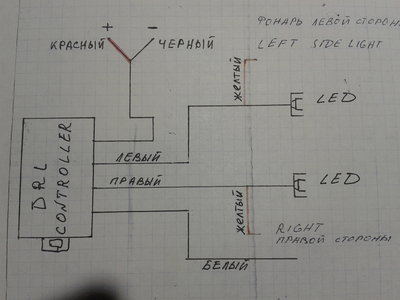 + -
КРАСНЫЙ ЧЕРНЫЙ
ФОНАРЬ ЛЕВОЙ СТОРОНЫ
LEFT SIDE LIGHT
ЖЕЛТЫЙ
LED
DRL
CONTROLLER
ЛЕВЫЙ
ПРАВЫЙ
LED
ЖЕЛТЫЙ
RIGHT
ПРАВОЙ СТОРОНЫ
БЕЛЫЙ